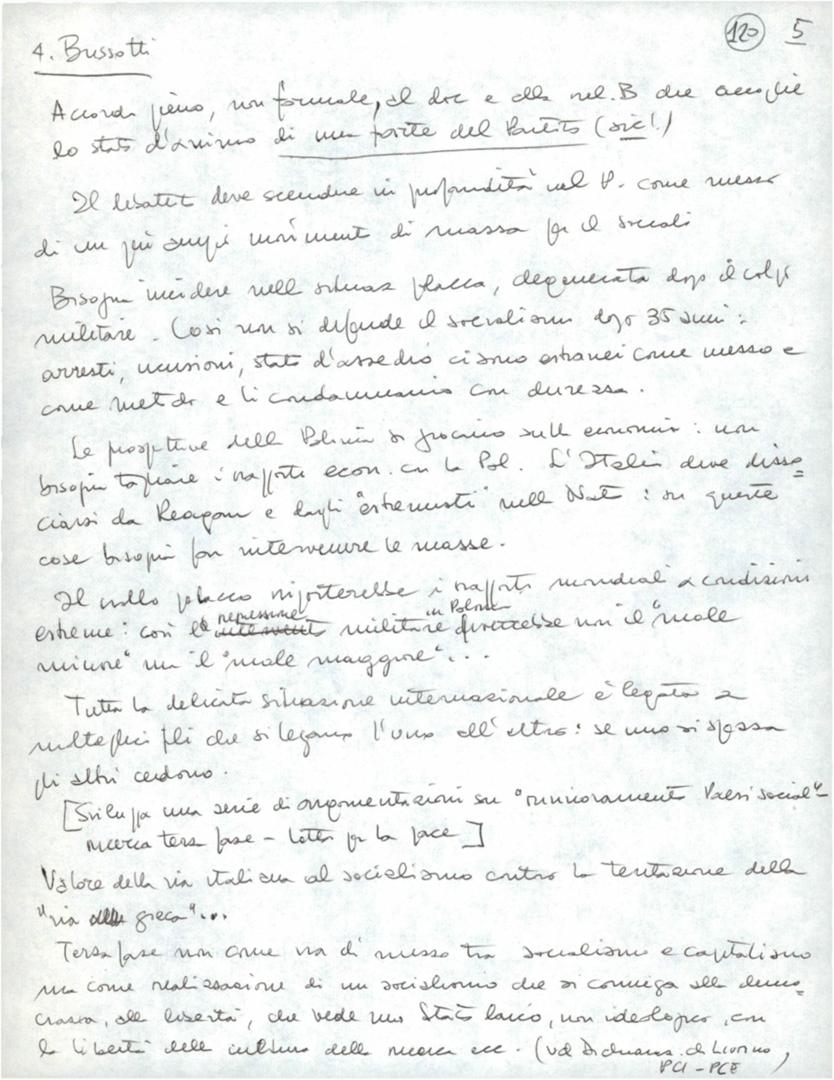 120 5
4. Bussotti
Accordo pieno, non formale, al doc e alla rel. B che accoglie
lo stato d'animo di una parte del Partito (sic!)
Il dibattito deve scendere in profondità nel P. come mezzo
di un più ampio movimento di massa per il sociali
Bisogna incidere nella situaz polacca, degenerata dopo il colpo
militare. Così non si difende il socialismo dopo 35 anni:
arresti, uccisioni, stato d'assedio ci sono estranei come mezzo e
come metodo e li condanniamo con durezza.
Le prospettive della Polonia si giocano sulla economia: non
bisogna tagliare i rapporti econ. con la Pol. L'Italia deve disso
ciarsi da Reagan e dagli "estremisti" nella Nato: su queste
cose bisogna far intervenire le masse.
Il crollo polacco riporterebbe i rapporti mondiali a condizioni
repressione in Polonia
estreme: così la militare diverrebbe non il "male
minore" ma il "male maggiore"...
Tutta la delicata situazione internazionale è legata a
molteplici fili che si legano l'uno all'altro: se uno si spezza
gli altri cedono.
[Sviluppa una serie di argomentazioni su "rinnovamento Paesi social"-
ricerca terza fase - lotta per la pace]
Valore della via italiana al socialismo contro la tentazione della
"via greca"...
Terza fase non come via di mezzo tra socialismo e capitalismo
ma come realizzazione di un socialismo che si coniuga alla demo
crazia, alla libertà, che vede uno Stato laico, non ideologico, con
la libertà della cultura della ricerca ecc. (vd Dichiaraz. di Livorno,
PCI-PCE